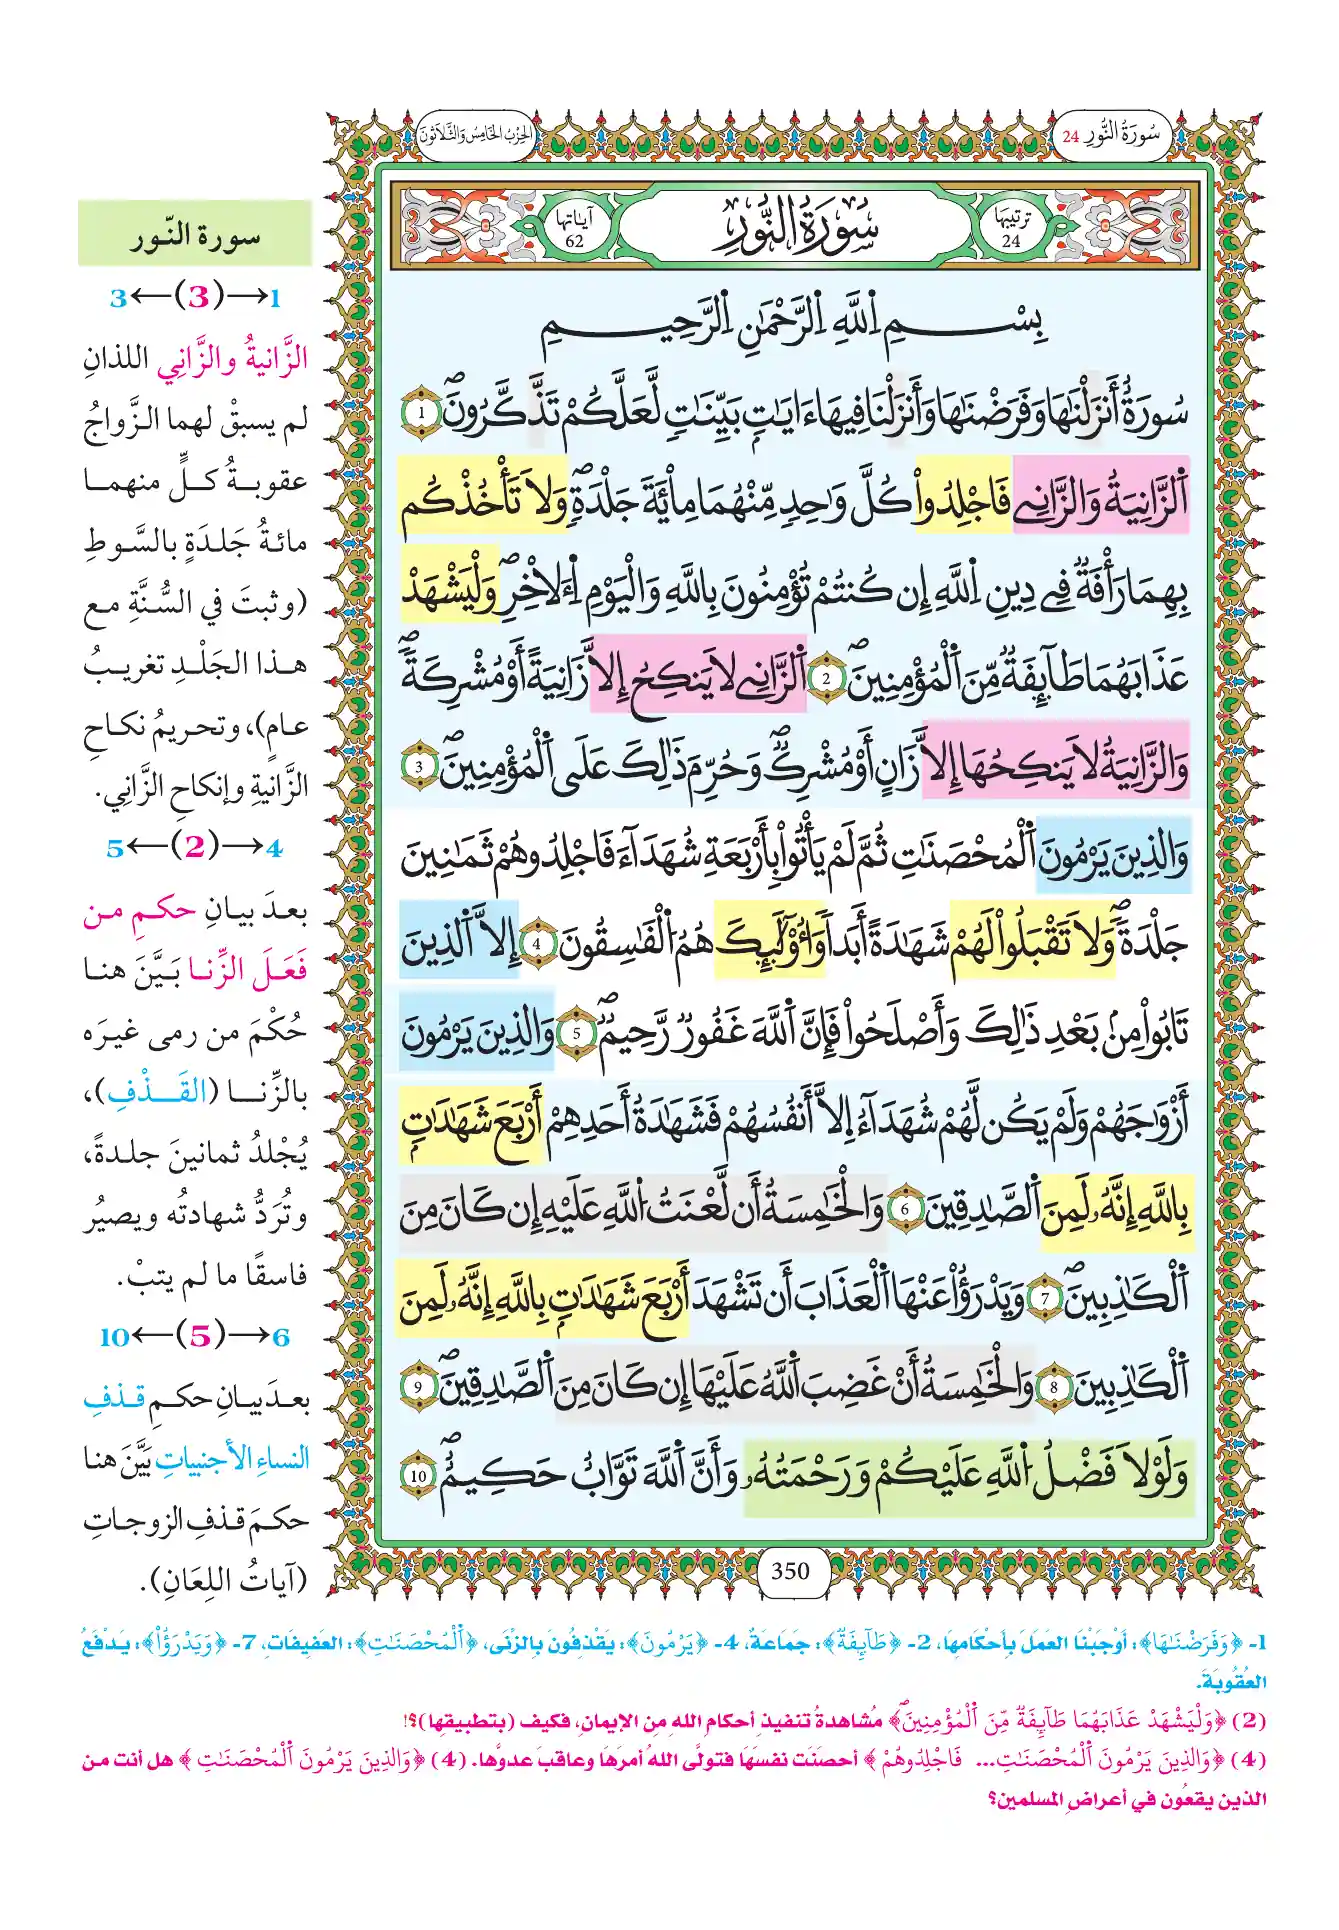 سُورَةُ النُّورِ 24
الحِزْبُ الخَامِسُ وَالثَّلَاثُونَ
ترتيبها
24
سُورَةُ النُّورِ
آياتها
62
بِسْمِ اِ۬للَّهِ اِ۬لرَّحْمَٰنِ اِ۬لرَّحِيمِ
سُورَةٌ أَنزَلْنَٰهَا وَفَرَضْنَٰهَا وَأَنزَلْنَا فِيهَا ءَايَٰتٖ بَيِّنَٰتٖ لَّعَلَّكُمْ تَذَّكَّرُونَۖ 1
اَ۬لزَّانِيَةُ وَالزَّانِے فَاجْلِدُواْ كُلَّ وَٰحِدٖ مِّنْهُمَا مِاْئَةَ جَلْدَةٖۖ وَلَا تَأْخُذْكُم
بِهِمَا رَأْفَةٞ فِے دِينِ اِ۬للَّهِ إِن كُنتُمْ تُؤْمِنُونَ بِاللَّهِ وَالْيَوْمِ اِ۬لَاخِرِۖ وَلْيَشْهَدْ
عَذَابَهُمَا طَآئِفَةٞ مِّنَ اَ۬لْمُؤْمِنِينَۖ 2 اَ۬لزَّانِے لَا يَنكِحُ إِلَّا زَانِيَةً أَوْ مُشْرِكَةٗۖ
وَالزَّانِيَةُ لَا يَنكِحُهَا إِلَّا زَانٍ أَوْ مُشْرِكٞۖ وَحُرِّمَ ذَٰلِكَ عَلَي اَ۬لْمُؤْمِنِينَۖ 3
وَالذِينَ يَرْمُونَ اَ۬لْمُحْصَنَٰتِ ثُمَّ لَمْ يَأْتُواْ بِأَرْبَعَةِ شُهَدَآءَ فَاجْلِدُوهُمْ ثَمَٰنِينَ
جَلْدَةٗۖ وَلَا تَقْبَلُواْ لَهُمْ شَهَٰدَةً أَبَداٗ وَأُوْلَٰٓئِكَ هُمُ اُ۬لْفَٰسِقُونَ 4 إِلَّا اَ۬لذِينَ
تَابُواْ مِنۢ بَعْدِ ذَٰلِكَ وَأَصْلَحُواْ فَإِنَّ اَ۬للَّهَ غَفُورٞ رَّحِيمٞۖ 5 وَالذِينَ يَرْمُونَ
أَزْوَٰجَهُمْ وَلَمْ يَكُن لَّهُمْ شُهَدَآءُ اِلَّا أَنفُسُهُمْ فَشَهَٰدَةُ أَحَدِهِمْ أَرْبَعَ شَهَٰدَٰتِۭ
بِاللَّهِ إِنَّهُۥ لَمِنَ اَ۬لصَّٰدِقِينَ 6 وَالْخَٰمِسَةُ أَن لَّعْنَتُ اُ۬للَّهِ عَلَيْهِ إِن كَانَ مِنَ
اَ۬لْكَٰذِبِينَۖ 7 وَيَدْرَؤُاْ عَنْهَا اَ۬لْعَذَابَ أَن تَشْهَدَ أَرْبَعَ شَهَٰدَٰتِۭ بِاللَّهِ إِنَّهُۥ لَمِنَ
اَ۬لْكَٰذِبِينَ 8 وَالْخَٰمِسَةُ أَنْ غَضِبَ اَ۬للَّهُ عَلَيْهَا إِن كَانَ مِنَ اَ۬لصَّٰدِقِينَۖ 9
وَلَوْلَا فَضْلُ اُ۬للَّهِ عَلَيْكُمْ وَرَحْمَتُهُۥ وَأَنَّ اَ۬للَّهَ تَوَّابٌ حَكِيمٌۖ 10
350
سورة النّور
1→(3)←3
الزَّانيةُ والزَّانِي اللذانِ
لم يسبقْ لهما الزَّواجُ
عقوبةُ كلٍّ منهما
مائةُ جَلدَةٍ بالسَّوطِ
(وثبتَ في السُّنَّةِ مع
هذا الجَلْدِ تغريبُ
عامٍ)، وتحريمُ نكاحِ
الزَّانيةِ وإنكاحِ الزَّانِي.
4→(2)←5
بعدَ بيانِ حكمِ من
فَعَلَ الزِّنا بَيَّنَ هنا
حُكْمَ من رمى غيرَه
بالزِّنا (القَذْفِ)،
يُجْلدُ ثمانينَ جلدةً،
وتُرَدُّ شهادتُه ويصيرُ
فاسقًا ما لم يتبْ.
6→(5)←10
بعدَ بيانِ حكمِ قذفِ
النساءِ الأجنبياتِ بَيَّنَ هنا
حكمَ قذفِ الزوجاتِ
(آياتُ اللِعَانِ).
1- ﴿وَفَرَضْنَٰهَا﴾: أَوْجَبْنَا العَمَلَ بِأَحْكَامِهَا، 2- ﴿طَآئِفَةٞ﴾: جَمَاعَةٌ، 4- ﴿يَرْمُونَ﴾: يَقْذِفُونَ بِالزِّنَى، ﴿اَ۬لْمُحْصَنَٰتِ﴾: العَفِيفَاتِ، 7- ﴿وَيَدْرَؤُاْ﴾: يَدْفَعُ
العُقُوبَةَ.
(2) ﴿وَلْيَشْهَدْ عَذَابَهُمَا طَآئِفَةٞ مِّنَ اَ۬لْمُؤْمِنِينَۖ﴾ مُشاهدةُ تنفيذِ أحكامِ اللهِ مِن الإيمانِ، فكيفَ (بتطبيقِها)؟!
(4) ﴿وَالذِينَ يَرْمُونَ اَ۬لْمُحْصَنَٰتِ... فَاجْلِدُوهُمْ﴾ أحصَنَت نفسَهَا فتولَّى اللهُ أمرَهَا وعاقبَ عدوَّها. (4) ﴿وَالذِينَ يَرْمُونَ اَ۬لْمُحْصَنَٰتِ﴾ هل أنت من
الذين يقعُون في أعراضِ المسلمين؟